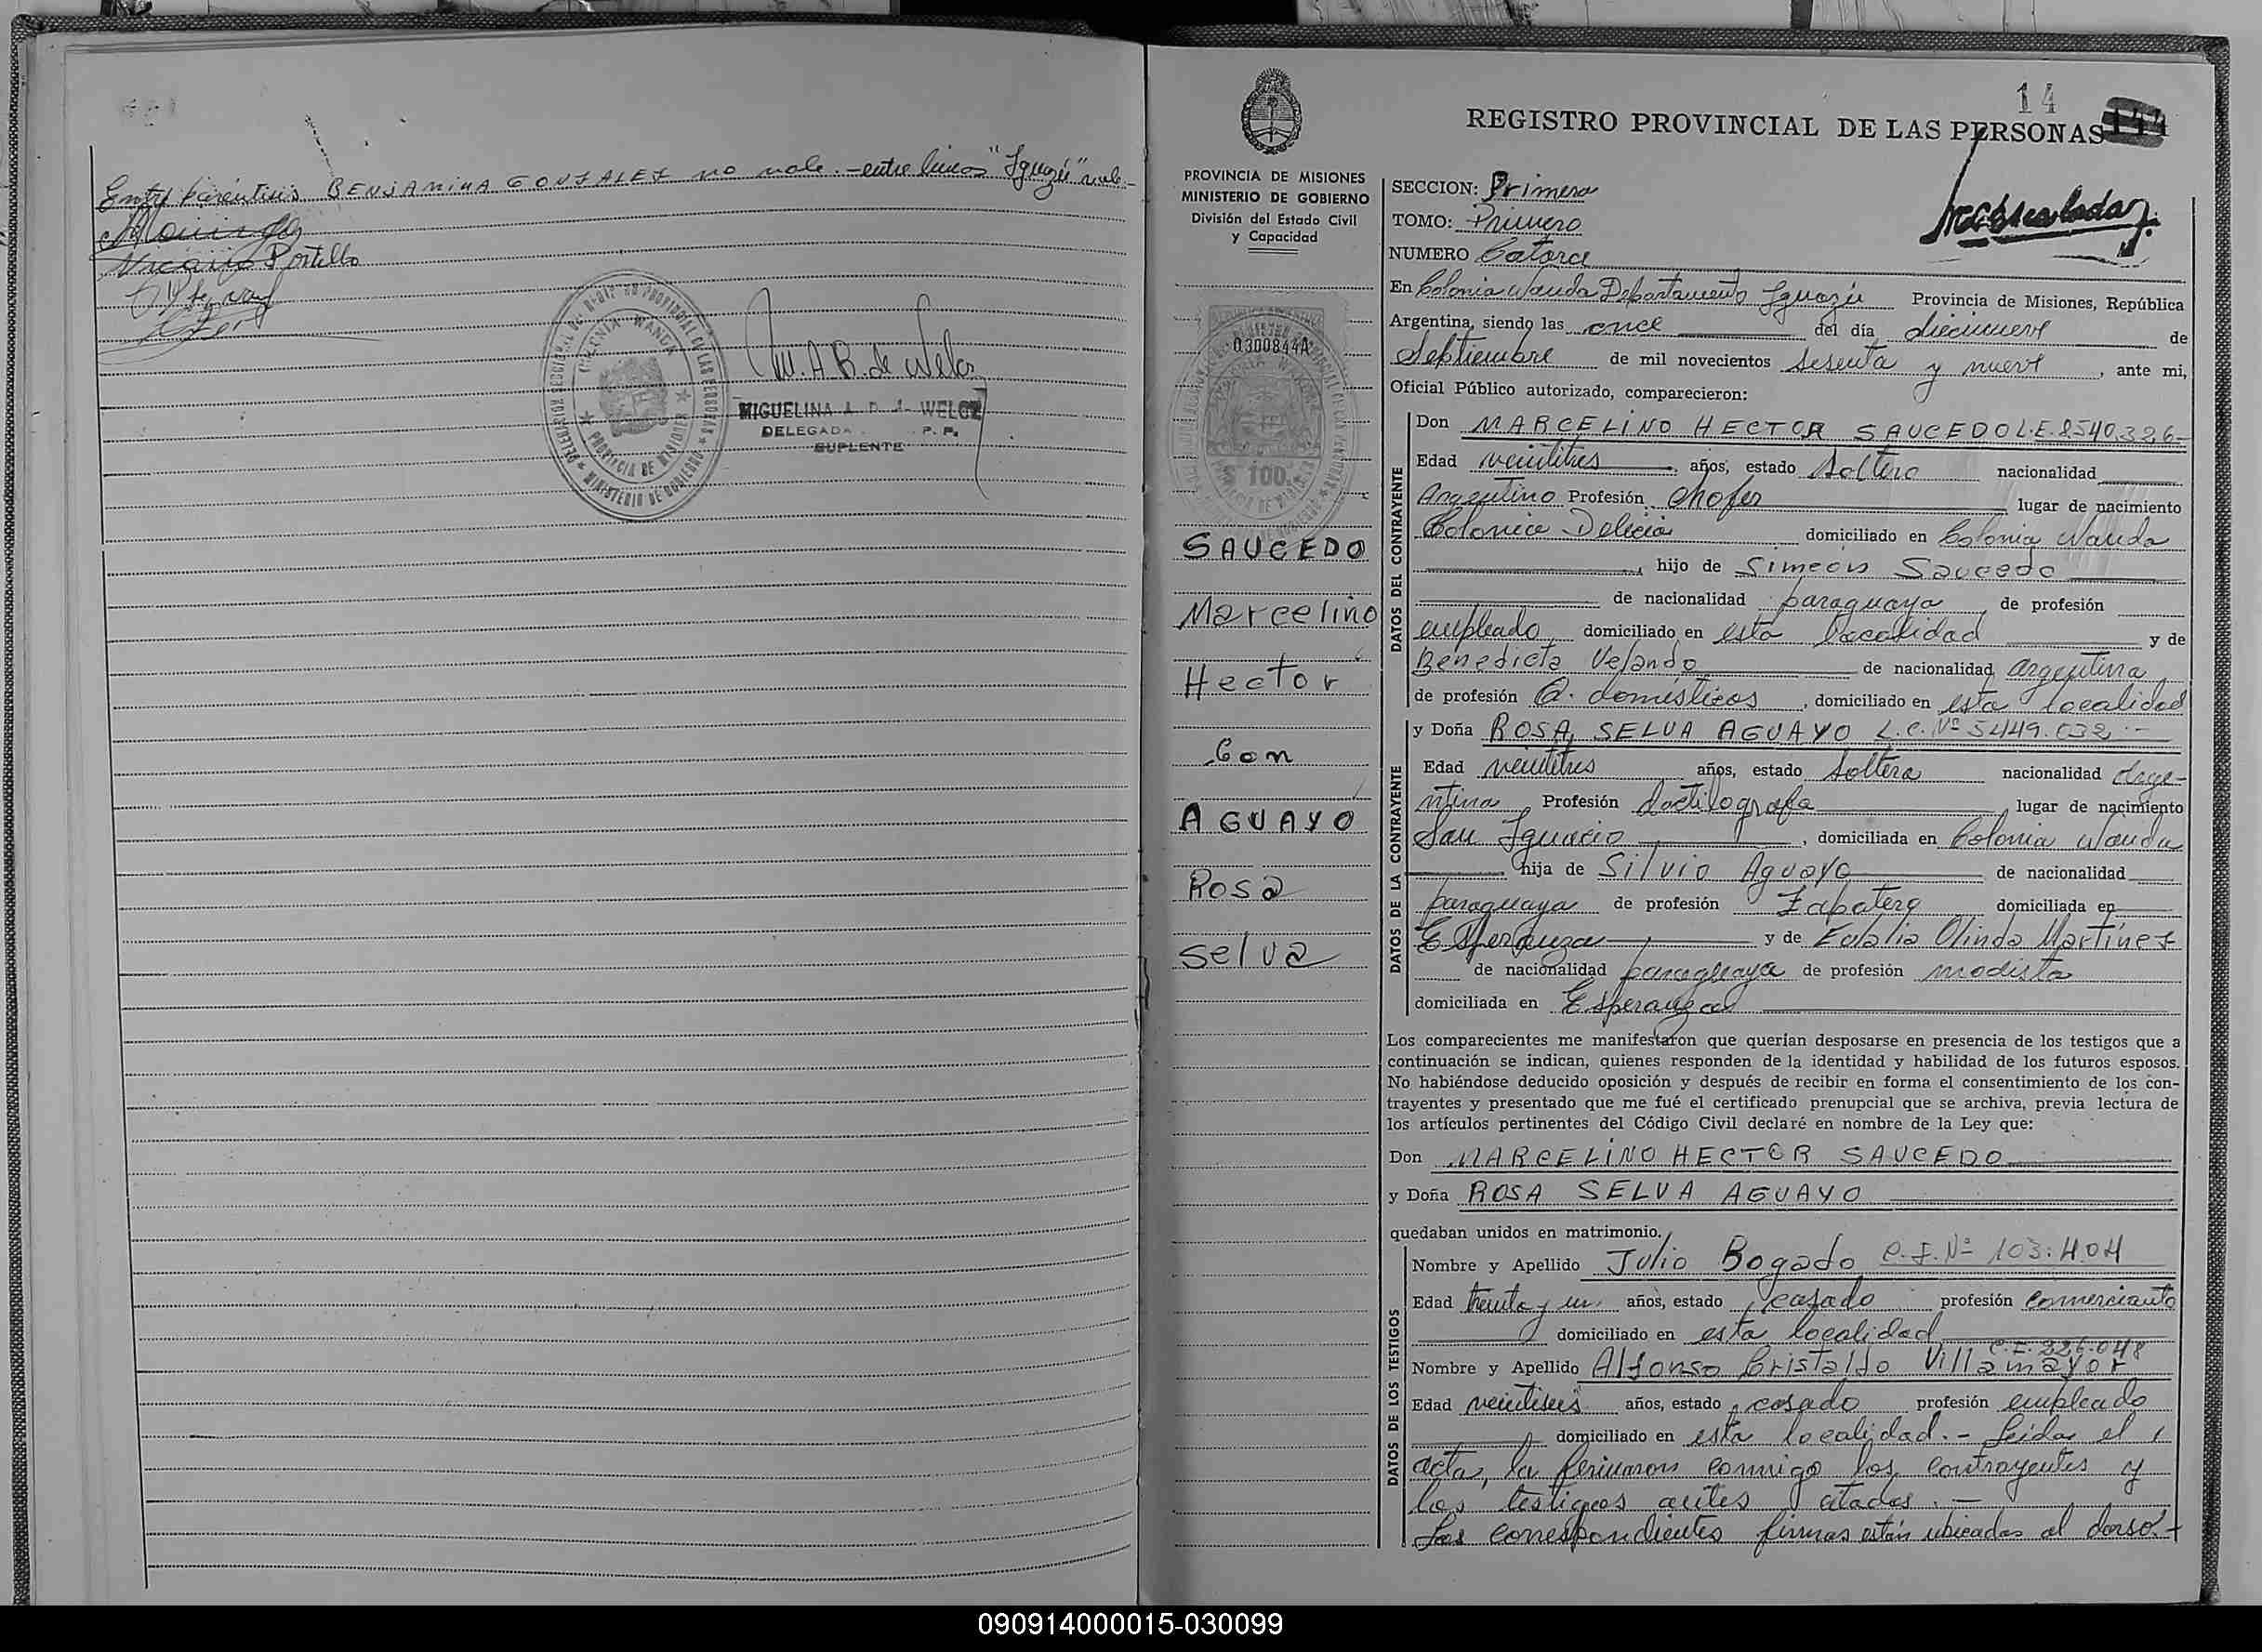 Entre paréntesis BENJAMINA GONSALES no vale.- entre lineas "Iguazú" vale.-
Portillo
DELEGACION SECCIONAL DEL REGISTRO PROVINCIAL DE LAS PERSONAS
COLONIA WANDA
PROVINCIA DE MISIONES
MINISTERIO DE GOBIERNO
M. A. B. de Welcz
MIGUELINA A. B. de WELCZ
DELEGADA P. P.
SUPLENTE
14
REGISTRO PROVINCIAL DE LAS PERSONAS 144
PROVINCIA DE MISIONES
MINISTERIO DE GOBIERNO
División del Estado Civil
y Capacidad
0300844A
$ 100.
SAUCEDO
Marcelino
Hector
Con
AGUAYO
Rosa
Selva
SECCION: Primera
TOMO: Primero
NUMERO Catorce
En Colonia Wanda Departamento Iguazú Provincia de Misiones, República
Argentina, siendo las once del día diecinueve de
Septiembre de mil novecientos sesenta y nueve, ante mi,
Oficial Público autorizado, comparecieron:
DATOS DEL CONTRAYENTE
Don MARCELINO HECTOR SAUCEDO L.E. 8540.326-
Edad veintitres años, estado soltero nacionalidad
Argentino Profesión chofer lugar de nacimiento
Colonia Delicia domiciliado en Colonia Wanda
, hijo de Simeón Saucedo
de nacionalidad paraguaya, de profesión
empleado, domiciliado en esta localidad y de
Benedicta Vejando de nacionalidad argentina,
de profesión Q. domésticos, domiciliado en esta localidad
DATOS DE LA CONTRAYENTE
y Doña ROSA SELVA AGUAYO L.C. Nº 5449.032.-
Edad veintitres años, estado soltera nacionalidad Arge-
ntina, Profesión dactilografa, lugar de nacimiento
San Ignacio, domiciliada en Colonia Wanda
hija de Silvio Aguayo de nacionalidad
paraguaya de profesión Zapatero domiciliada en
Esperanza y de Eulalia Olinda Martínez
de nacionalidad paraguaya de profesión modista
domiciliada en Esperanza
Los comparecientes me manifestaron que querían desposarse en presencia de los testigos que a
continuación se indican, quienes responden de la identidad y habilidad de los futuros esposos.
No habiéndose deducido oposición y después de recibir en forma el consentimiento de los con-
trayentes y presentado que me fué el certificado prenupcial que se archiva, previa lectura de
los artículos pertinentes del Código Civil declaré en nombre de la Ley que:
Don MARCELINO HECTOR SAUCEDO
y Doña ROSA SELVA AGUAYO
quedaban unidos en matrimonio.
DATOS DE LOS TESTIGOS
Nombre y Apellido Julio Bogado C.I. Nº 103.404
Edad treinta y un años, estado casado profesión comerciante
domiciliado en esta localidad
C.I. 226.048
Nombre y Apellido Alfonso Cristaldo Villamayor
Edad veintiseis años, estado casado profesión empleado
domiciliado en esta localidad.- Leída el
acta, la firmaron conmigo los contrayentes y
los testigos antes citados.-
Las correspondientes firmas están ubicadas al dorso.-
090914000015-030099